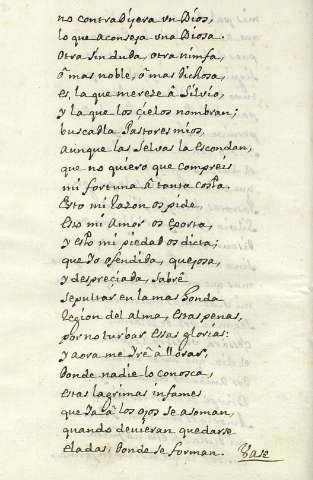 no contradijera vn Dios,
lo que aconseja vna Diosa.
otra sin duda, otra nimfa,
ô mas noble, ô mas dichosa,
es la que mereze â Silvio,
y la que los çielos nombran;
buscadla Pastores mios,
aunque las Selvas la escondan,
que no quiero que compreis
mi fortuna â tanta costa.
Esto mi razon os pide,
Esto mi Amor os exorta,
y esto mi piedad os dicta;
que Yo ofendida, quejosa,
y despreçiada, sabrê
sepultar en la mas honda
Region del alma, estas penas,
por no turbar essas glorias:
y aora me Yrê â llorar,
donde nadie lo conosca,
estas lagrimas infames
que Ya â los ojos se asoman,
quando devieran quedarse
eladas, donde se forman. Vase